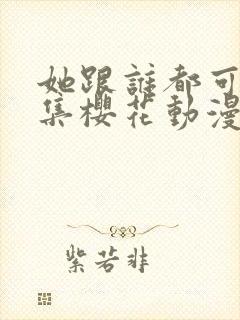 她跟誰都可
集櫻花動漫
紫若非